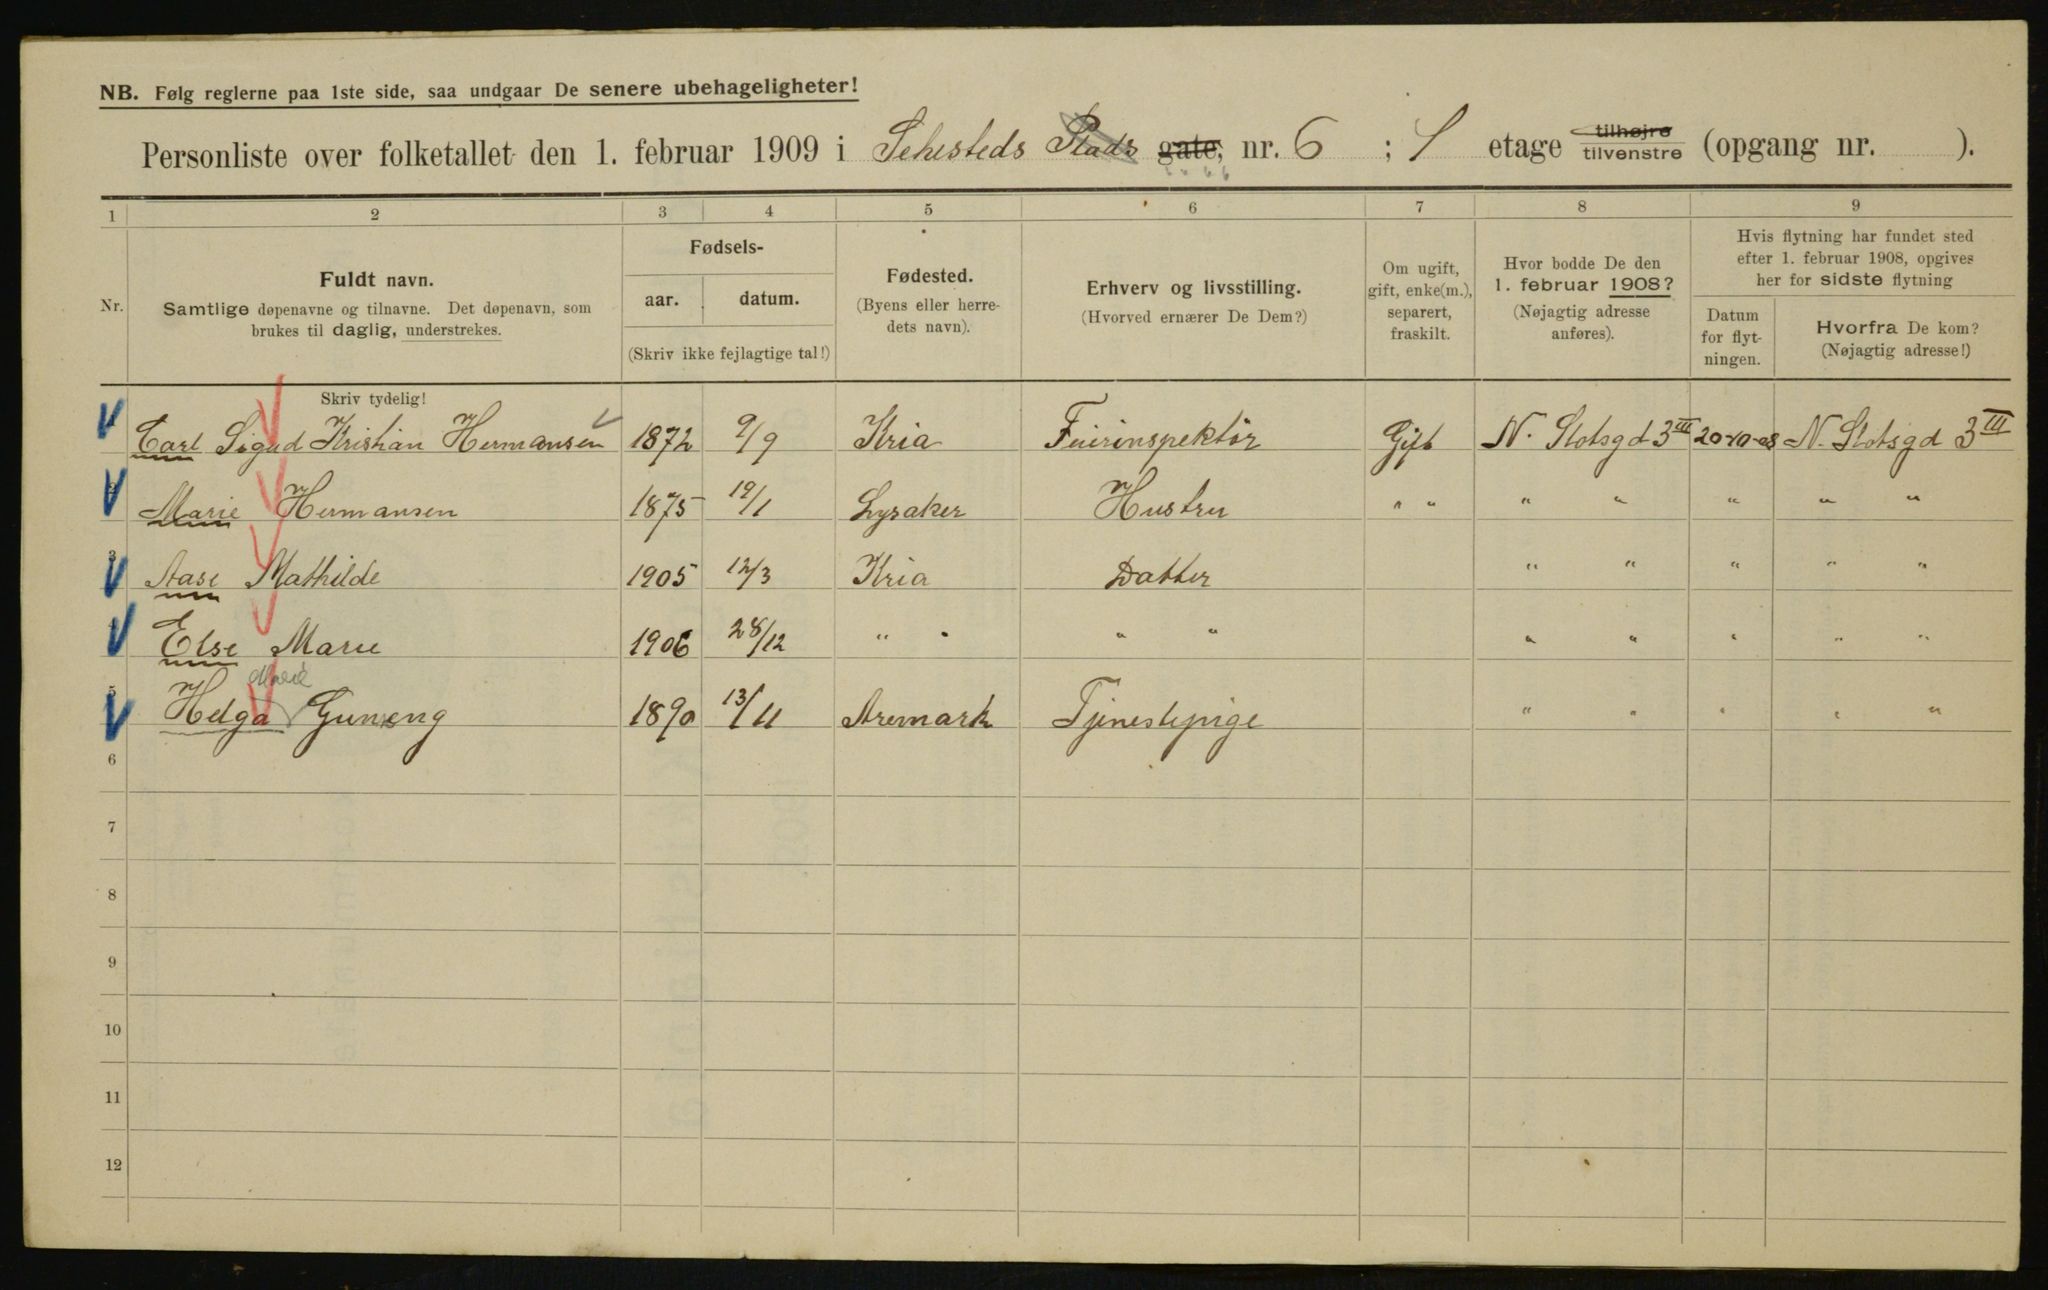 NB. Følg reglerne paa 1ste side, saa undgaar De senere ubehageligheter!
Personliste over folketallet den 1. februar 1909 i Sehesteds Plads gate, nr. 6 ; 1 etage tilhøjre tilvenstre (opgang nr. ).
1 2 3 4 5 6 7 8 9
Nr.
Fuldt navn.
Samtlige døpenavne og tilnavne. Det døpenavn, som
brukes til daglig, understrekes.
Fødsels-
aar. datum.
(Skriv ikke fejlagtige tal!)
Fødested.
(Byens eller herre-
dets navn).
Erhverv og livsstilling.
(Hvorved ernærer De Dem?)
Om ugift,
gift, enke(m.),
separert,
fraskilt.
Hvor bodde De den
1. februar 1908?
(Nøjagtig adresse
anføres).
Hvis flytning har fundet sted
efter 1. februar 1908, opgives
her for sidste flytning
Datum
for flyt-
ningen.
Hvorfra De kom?
(Nøjagtig adresse!)
Skriv tydelig!
Carl Sigud Kristian Hermansen 1872 9/9 Kria Feierinspektör Gift N. Slotsgd 3 III 20-10-08 N. Slotsgd 3 III
2 Marie Hermansen 1875 19/1 Lysaker Hustru " " " " " " "
3 Aase Mathilde 1905 12/3 Kria Datter " " " " "
Else Marie 1906 28/12 " " " " " " " " "
Marie
5 Helga Guneng 1890 13/11 Aremark Tjenestepige " " " " "
6
7
8
9
10
11
12